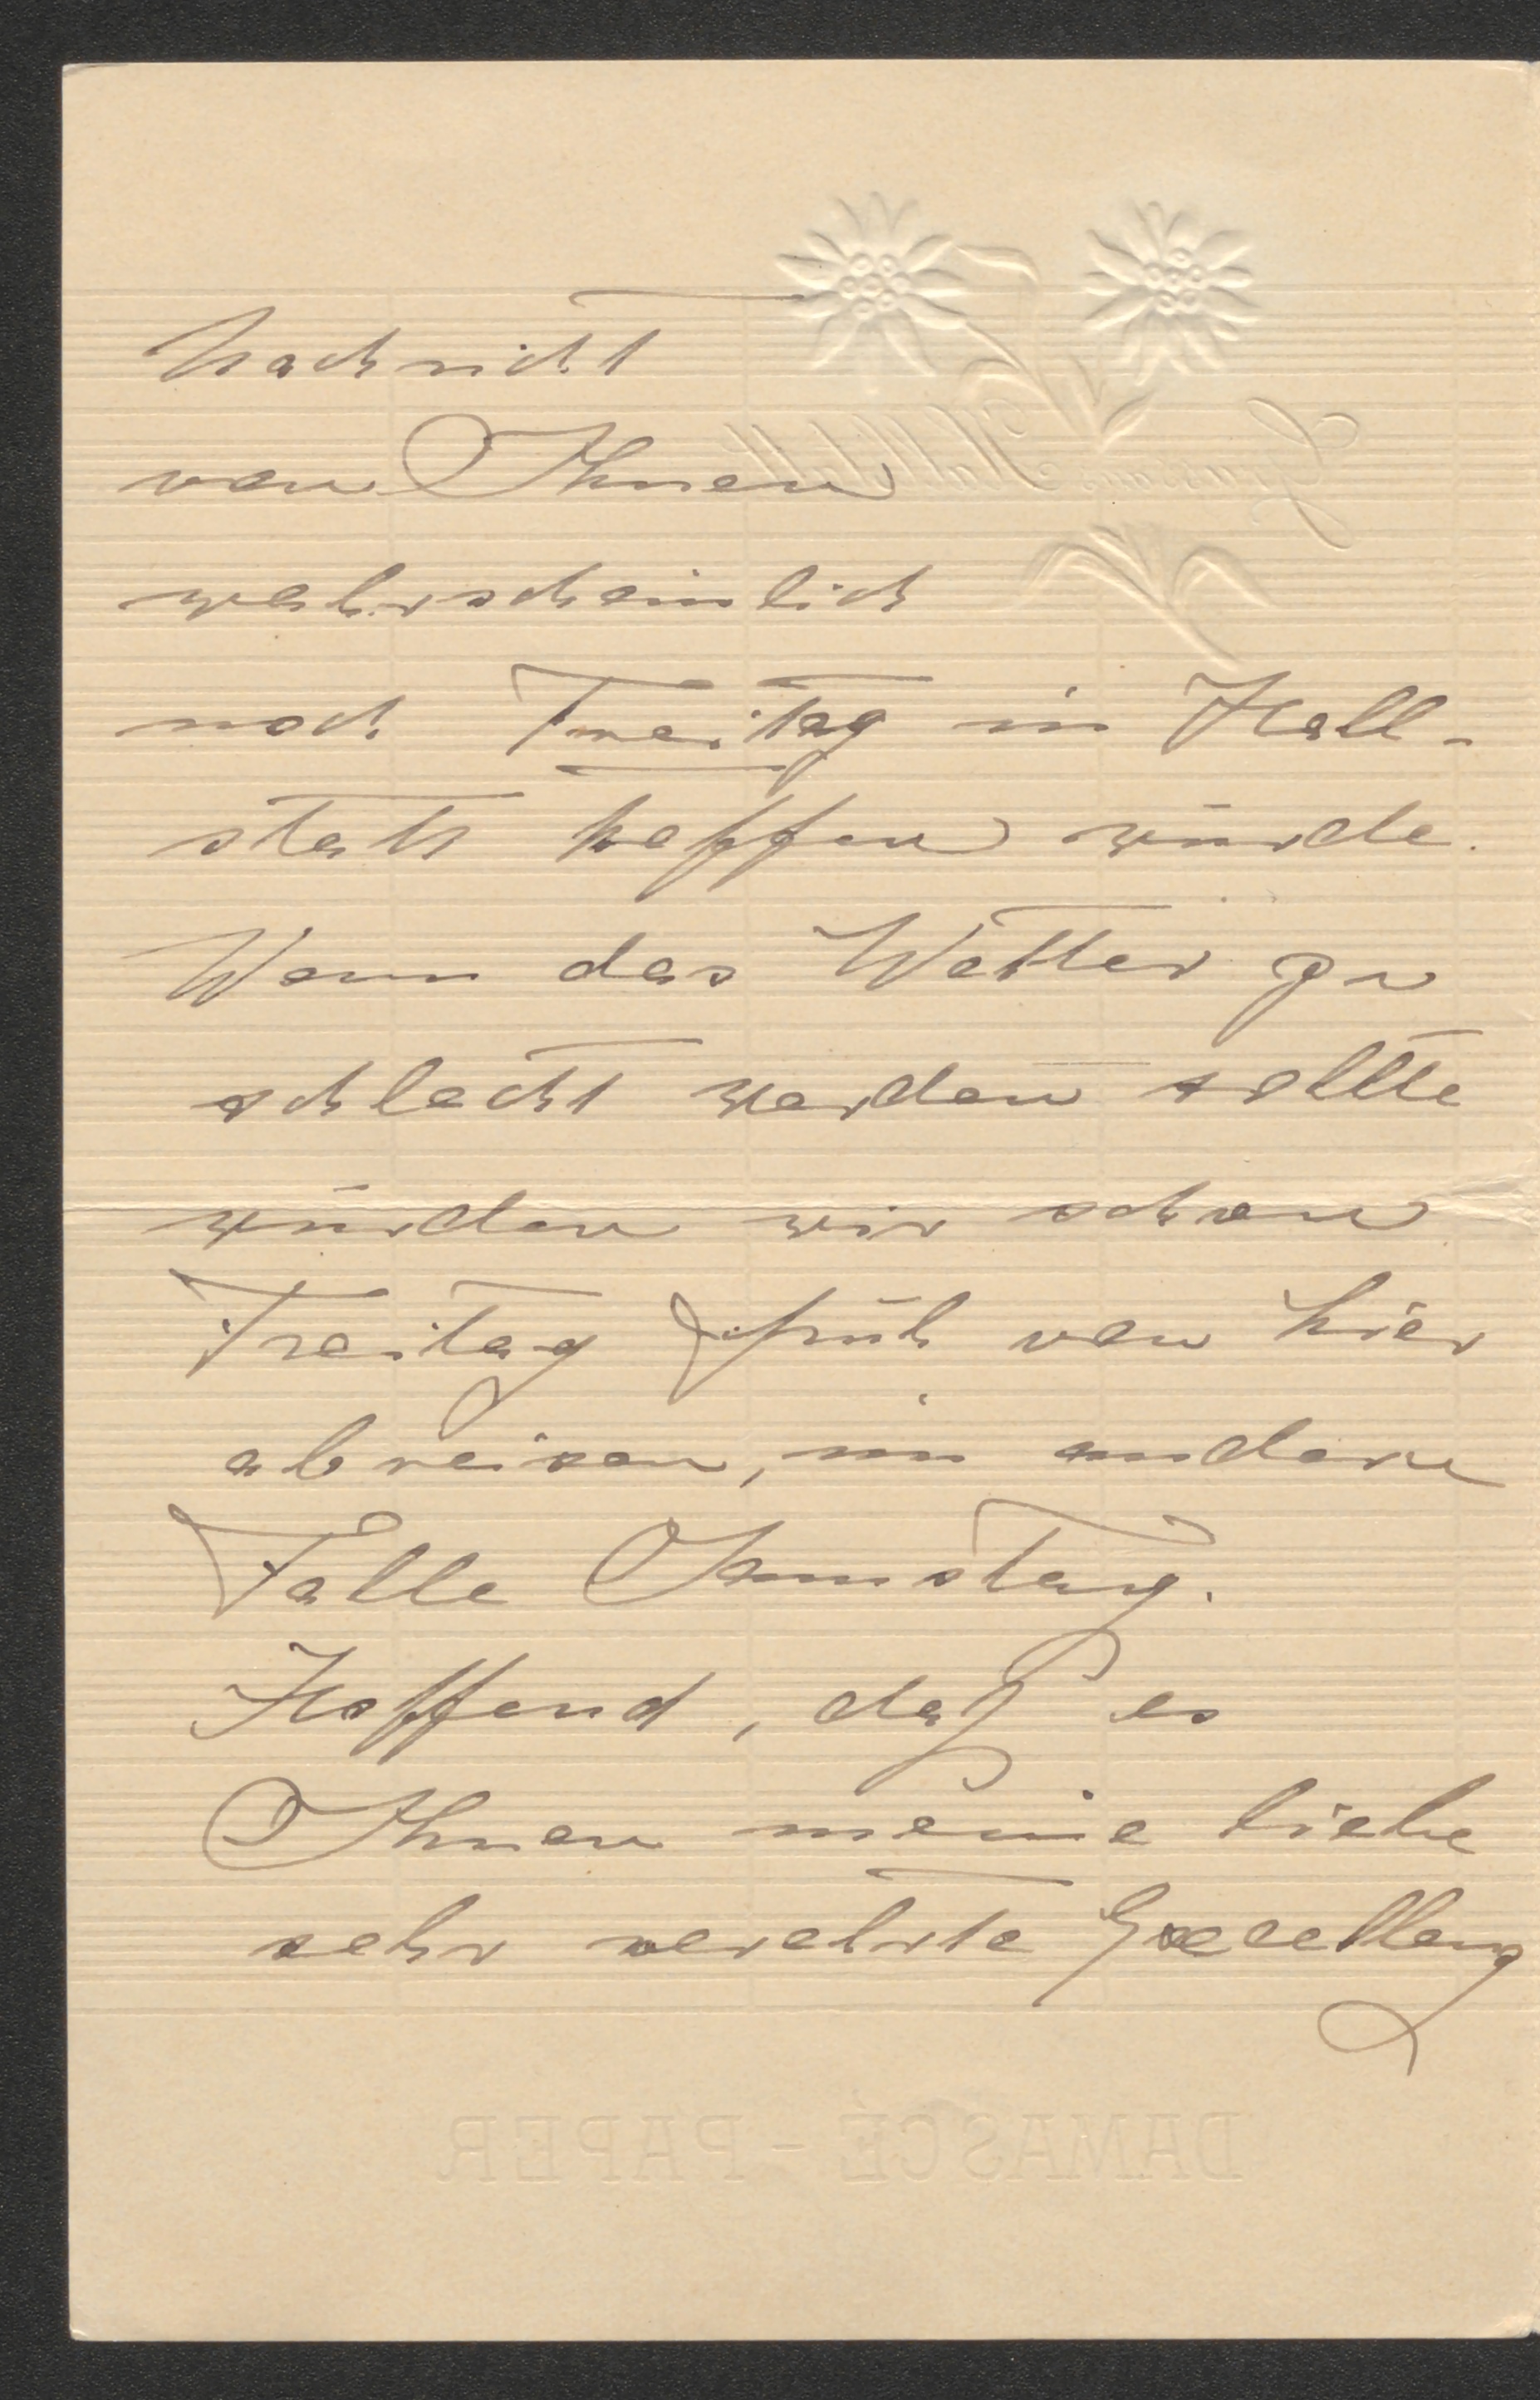 Nachricht
von Ihnen
wahrscheinlich
noch Freitag in Hall-
statt treffen würde.
Wenn das Wetter zu
schlecht werden sollte
würden wir schon
Freitag früh von hier
abreisen, im andern
Falle Samstag.
Hoffend, daß es
Ihnen meine liebe
sehr verehrte Excellenz
DAMASCÉ-PAPER